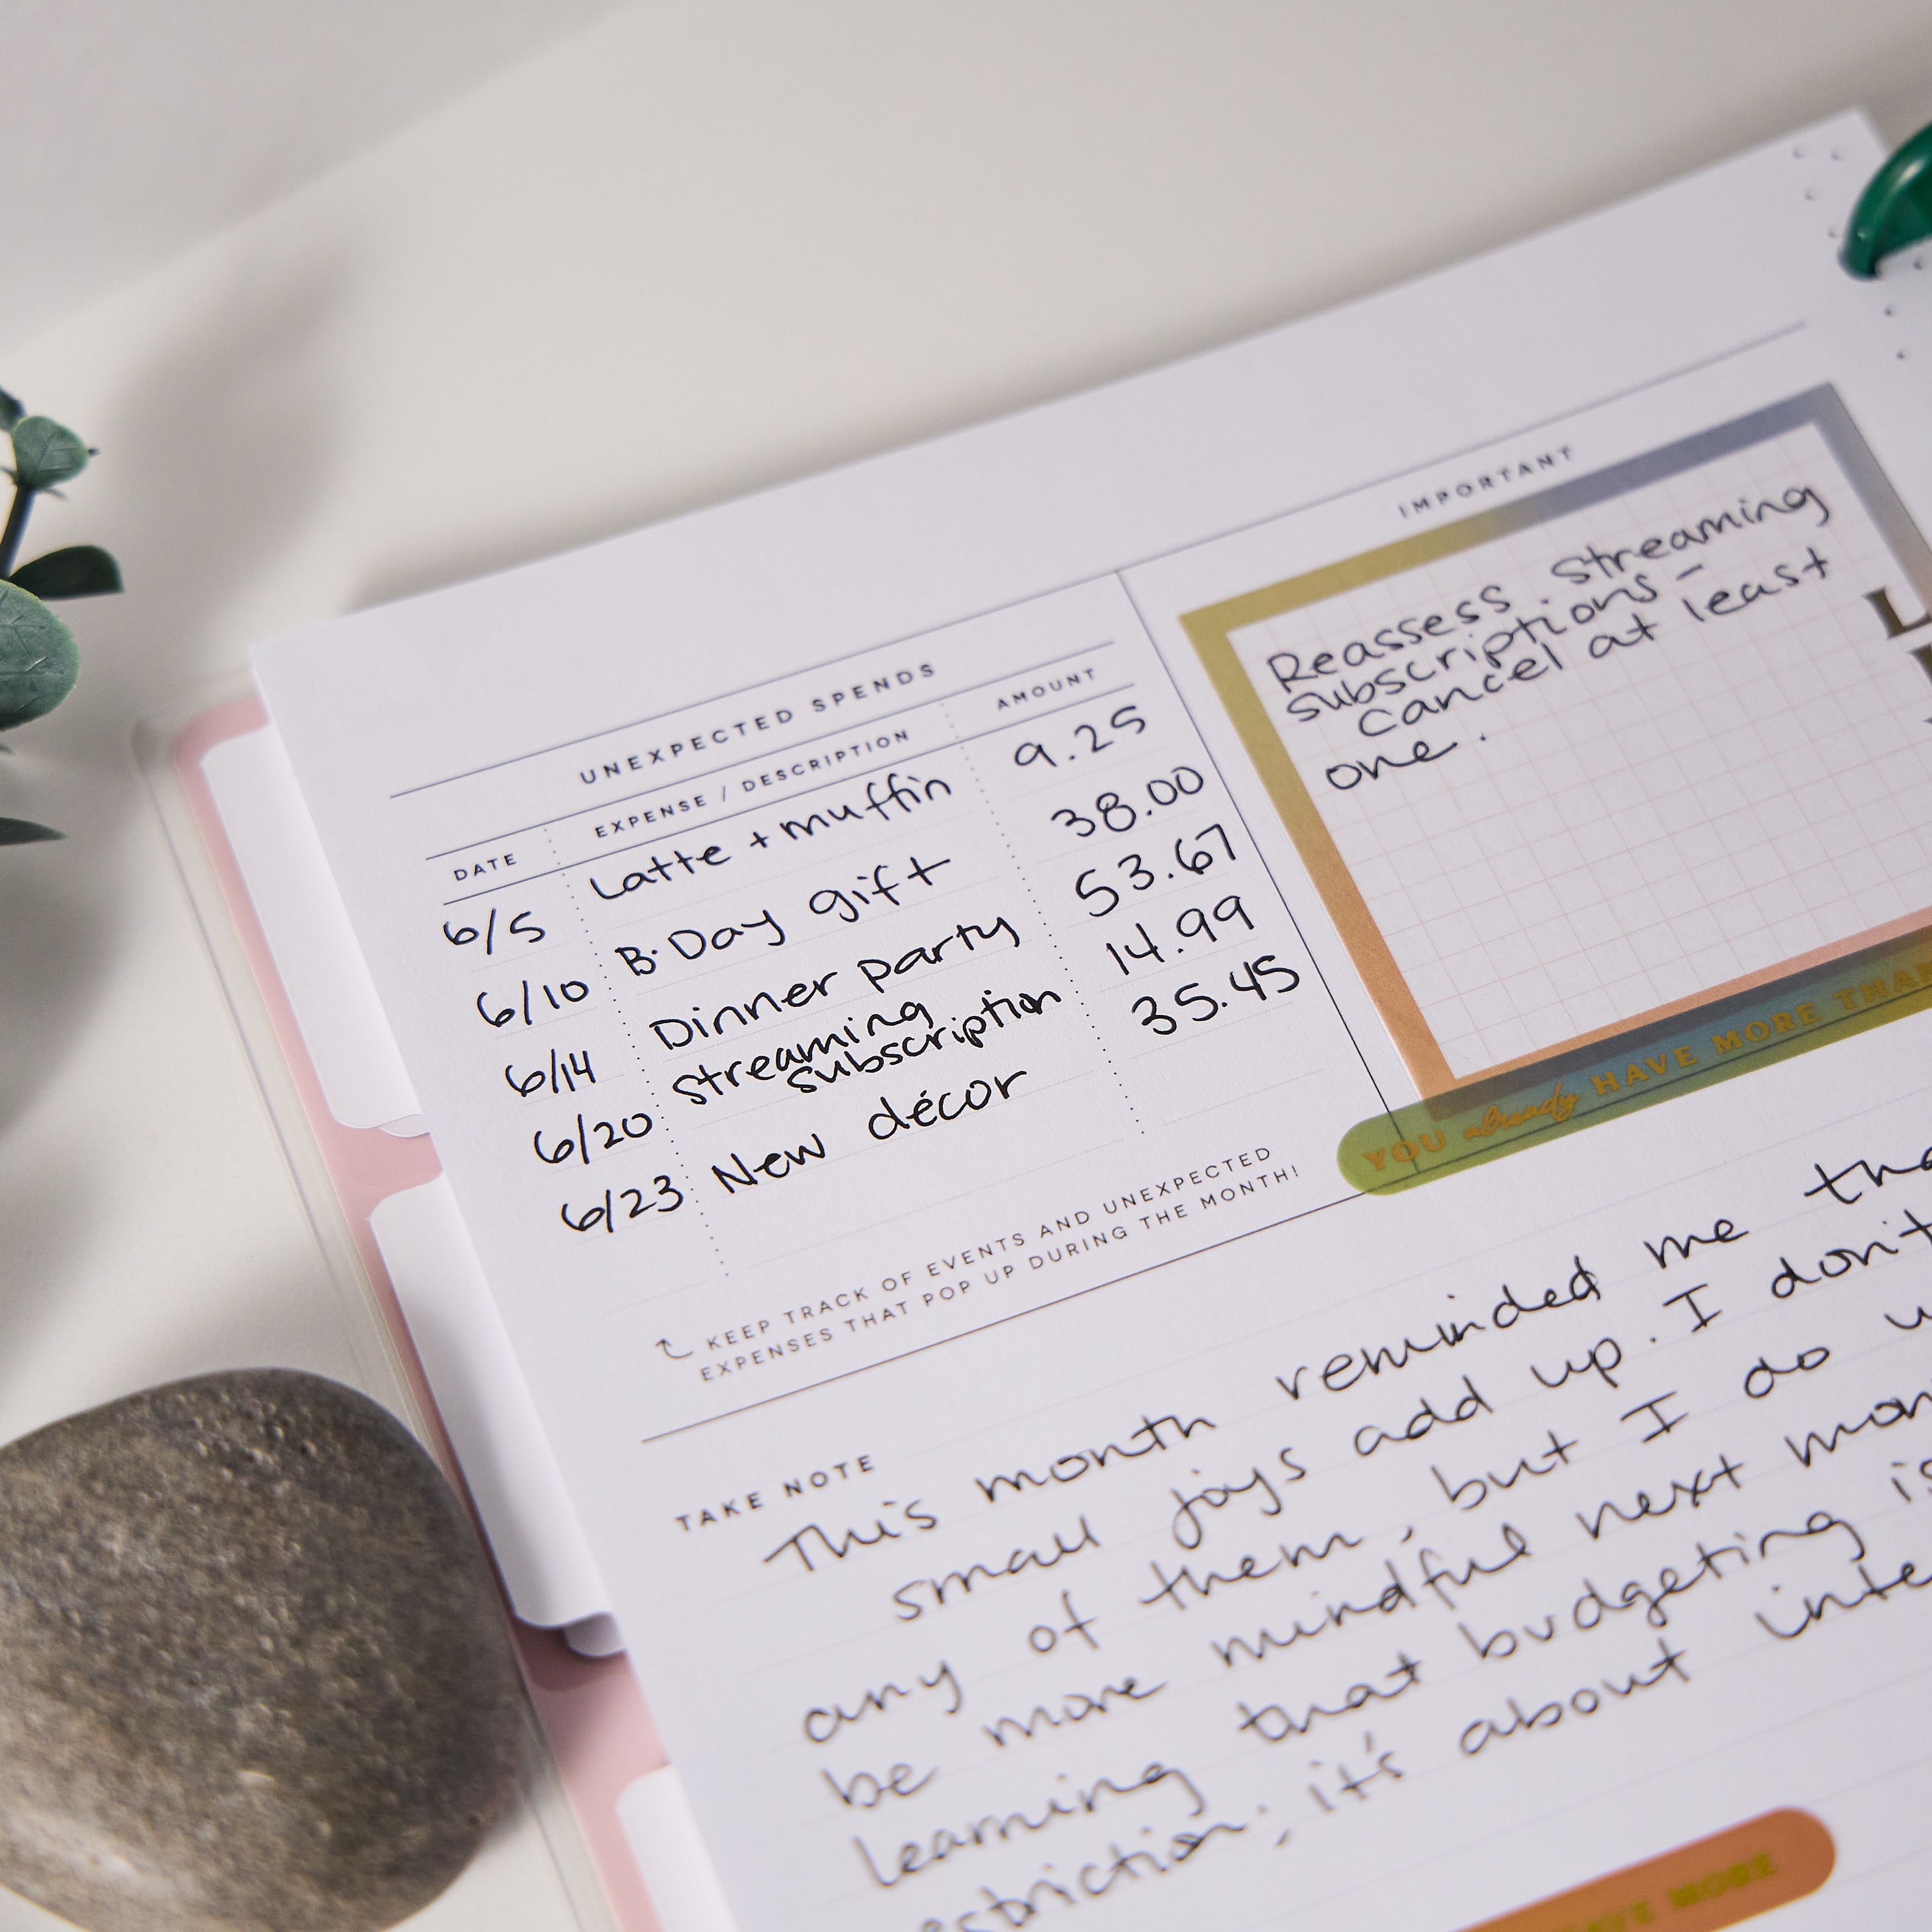 UNEXPECTED SPENDS
DATE EXPENSE / DESCRIPTION AMOUNT
6/5 Latte + muffin 9.25
6/10 B·Day gift 38.00
6/14 Dinner party 53.67
6/20 Streaming subscription 14.99
6/23 New décor 35.45
KEEP TRACK OF EVENTS AND UNEXPECTED
EXPENSES THAT POP UP DURING THE MONTH!
IMPORTANT
Reassess streaming
subscriptions –
cancel at least
one.
YOU already HAVE MORE THAN
TAKE NOTE
This month reminded me
small joys add up. I don't
any of them, but I do
be more mindful next
learning that budgeting is
it's about
MORE